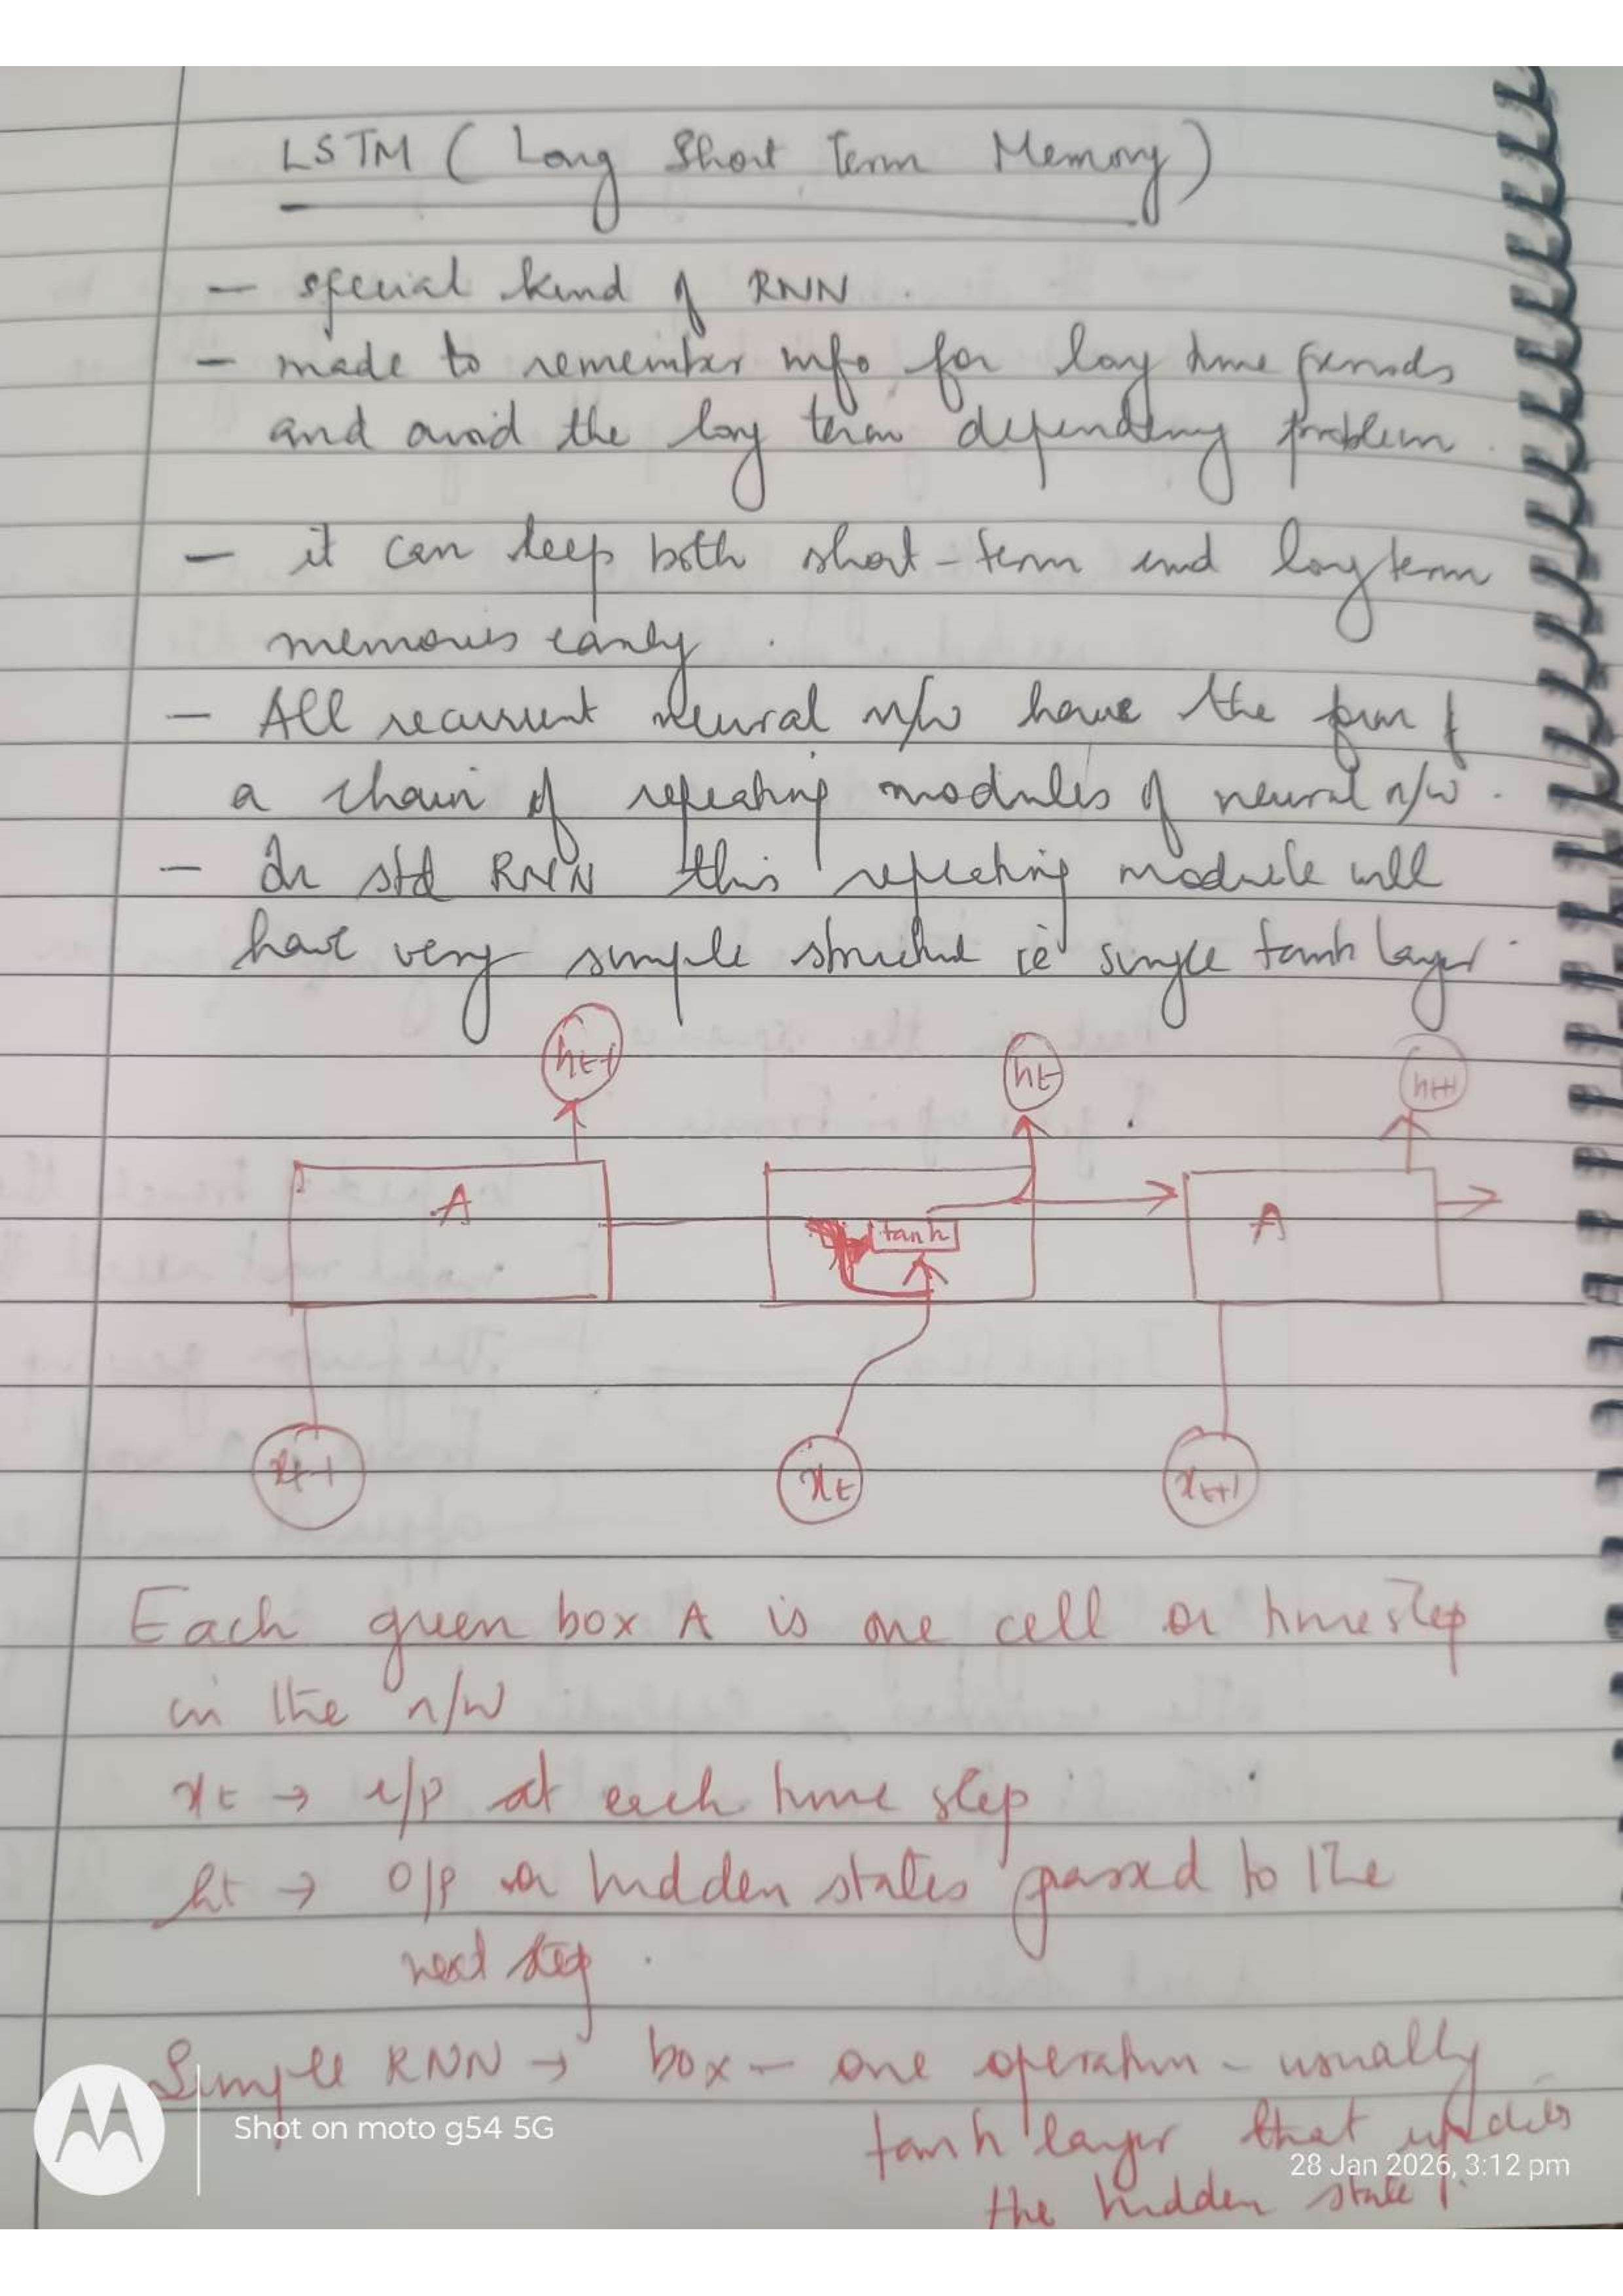 LSTM ( Long Short Term Memory )
- special kind of RNN .
- made to remember info for long time periods
and avoid the long term dependency problem .
- it can keep both short - term and long term
memories easily .
- All recurrent neural n/w have the form of
a chain of repeating modules of neural n/w .
- In std RNN this repeating module will
have very simple structure ie single tanh layer .
ht-1 ht ht+1
A tanh A
xt-1 xt xt+1
Each green box A is one cell or time step
in the n/w
xt → i/p at each time step
ht → o/p or hidden states passed to the
next step .
Simple RNN → box - one operation - usually
tanh layer that updates
the hidden state .
Shot on moto g54 5G
28 Jan 2026, 3:12 pm